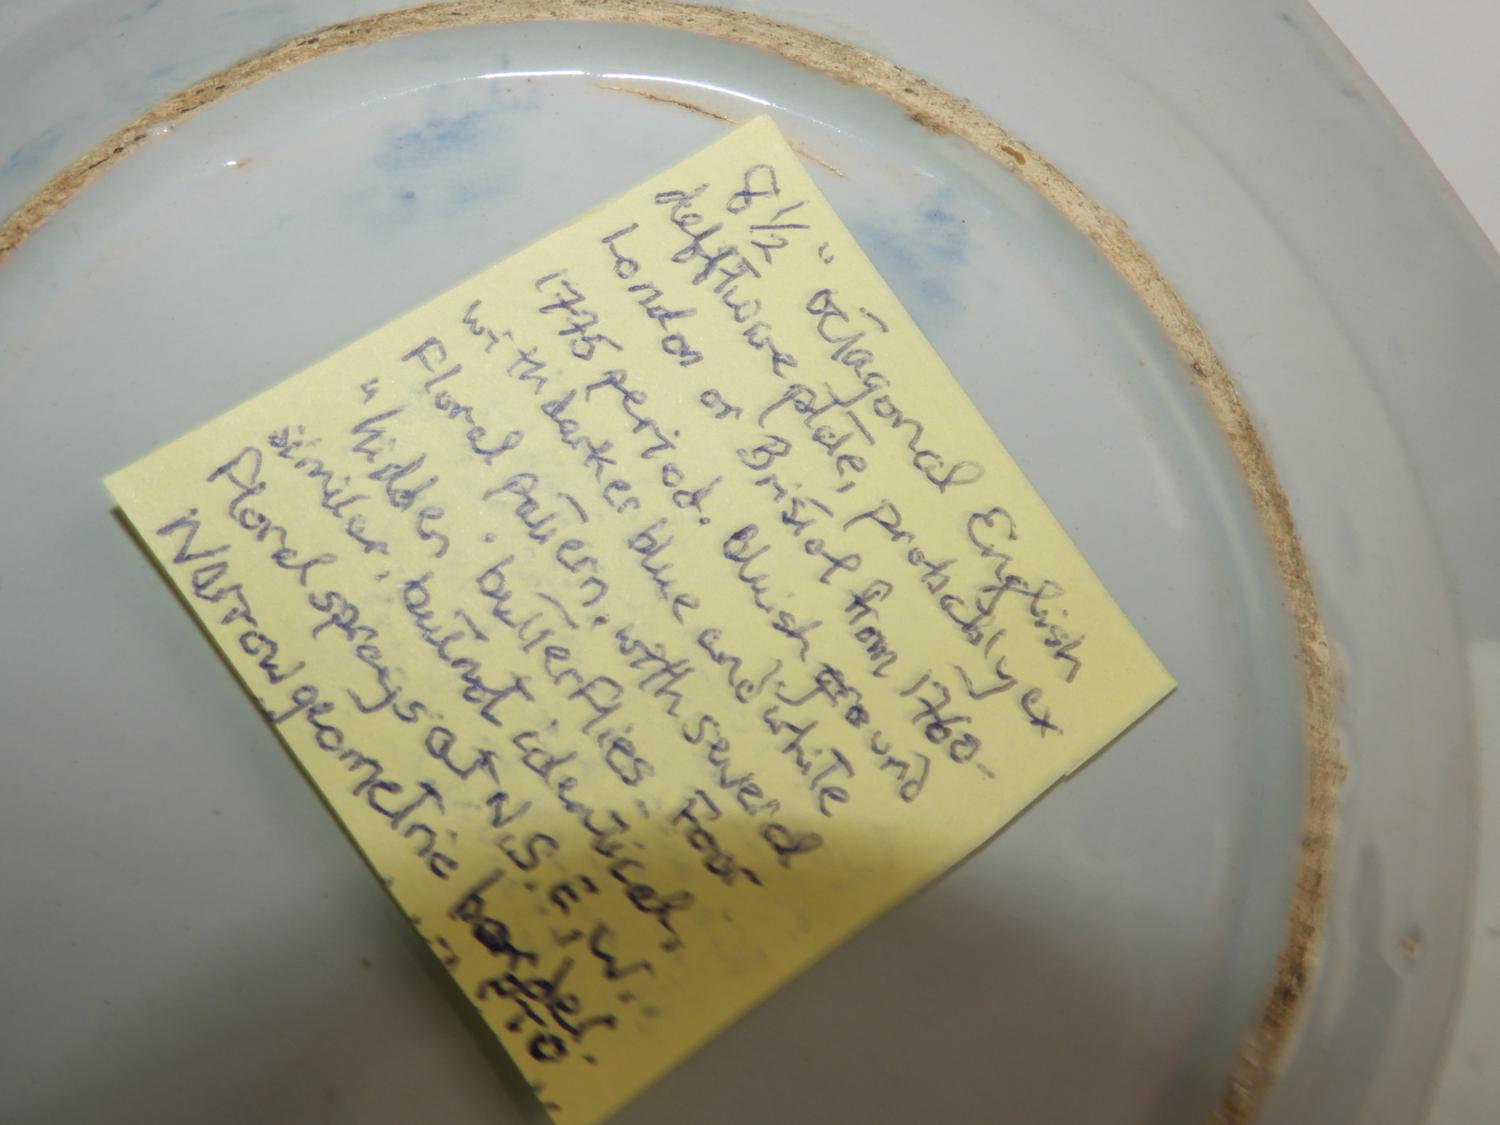 8 1/2" octagonal English
delftware plate, probably ex
London or Bristol from 1760-
1775 period. Bluish ground
with darker blue and white
Floral pattern, with several
"hidden" butterflies. Four
similar, but not identical,
Floral sprays at N.S.E.W.
Narrow geometric border.
PTO.